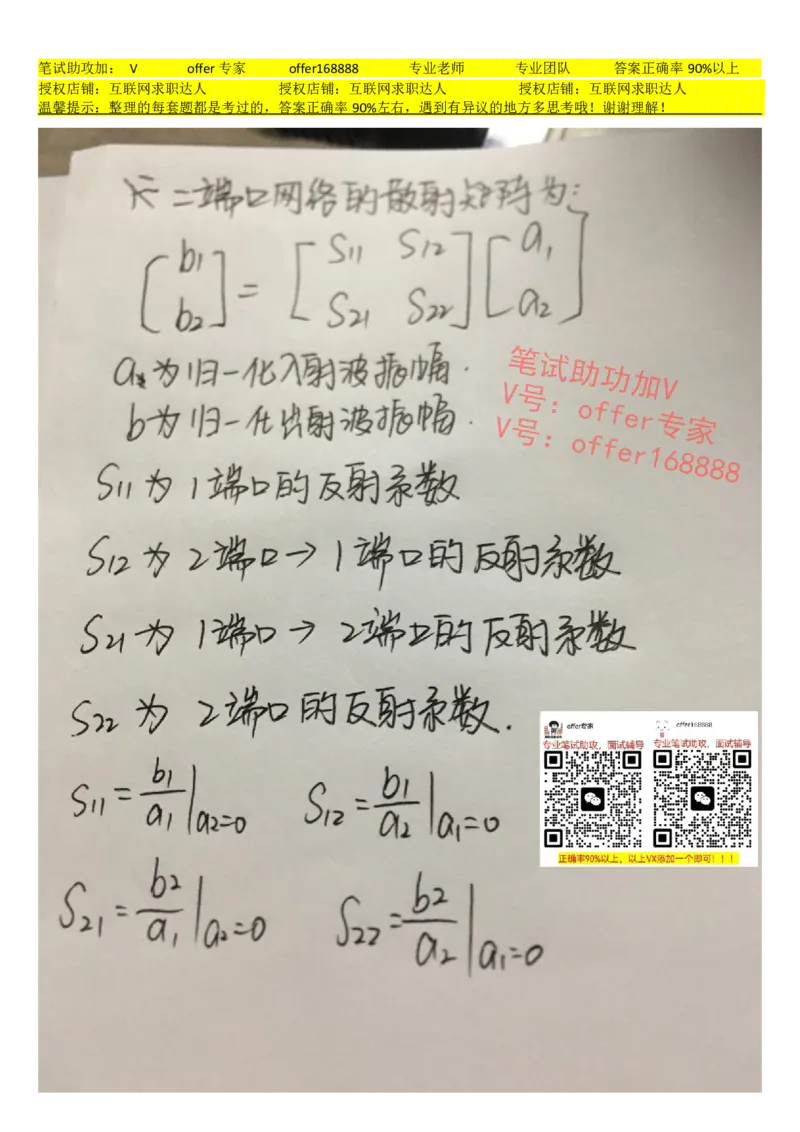 笔试助攻加: V offer专家 offer168888 专业老师 专业团队 答案正确率90%以上
授权店铺：互联网求职达人 授权店铺：互联网求职达人 授权店铺：互联网求职达人
温馨提示：整理的每套题都是考过的，答案正确率90%左右，遇到有异议的地方多思考哦！谢谢理解！
二端口网络的散射矩阵为:
[b1 b2] = [S11 S12 S21 S22] [a1 a2]
a 为归一化入射波振幅.
b为归一化出射波振幅.
笔试助功加V
V号：offer专家
V号：offer168888
S11为1端口的反射系数
S12为2端口→1端口的反射系数
S21为1端口→2端口的反射系数
S22为2端口的反射系数.
offer专家 offer168888
专业笔试助攻，面试辅导 专业笔试助攻，面试辅导
正确率90%以上，以上VX添加一个即可！！！
S11 = b1/a1 |a2=0 S12 = b1/a2 |a1=0
S21 = b2/a1 |a2=0 S22 = b2/a2 |a1=0